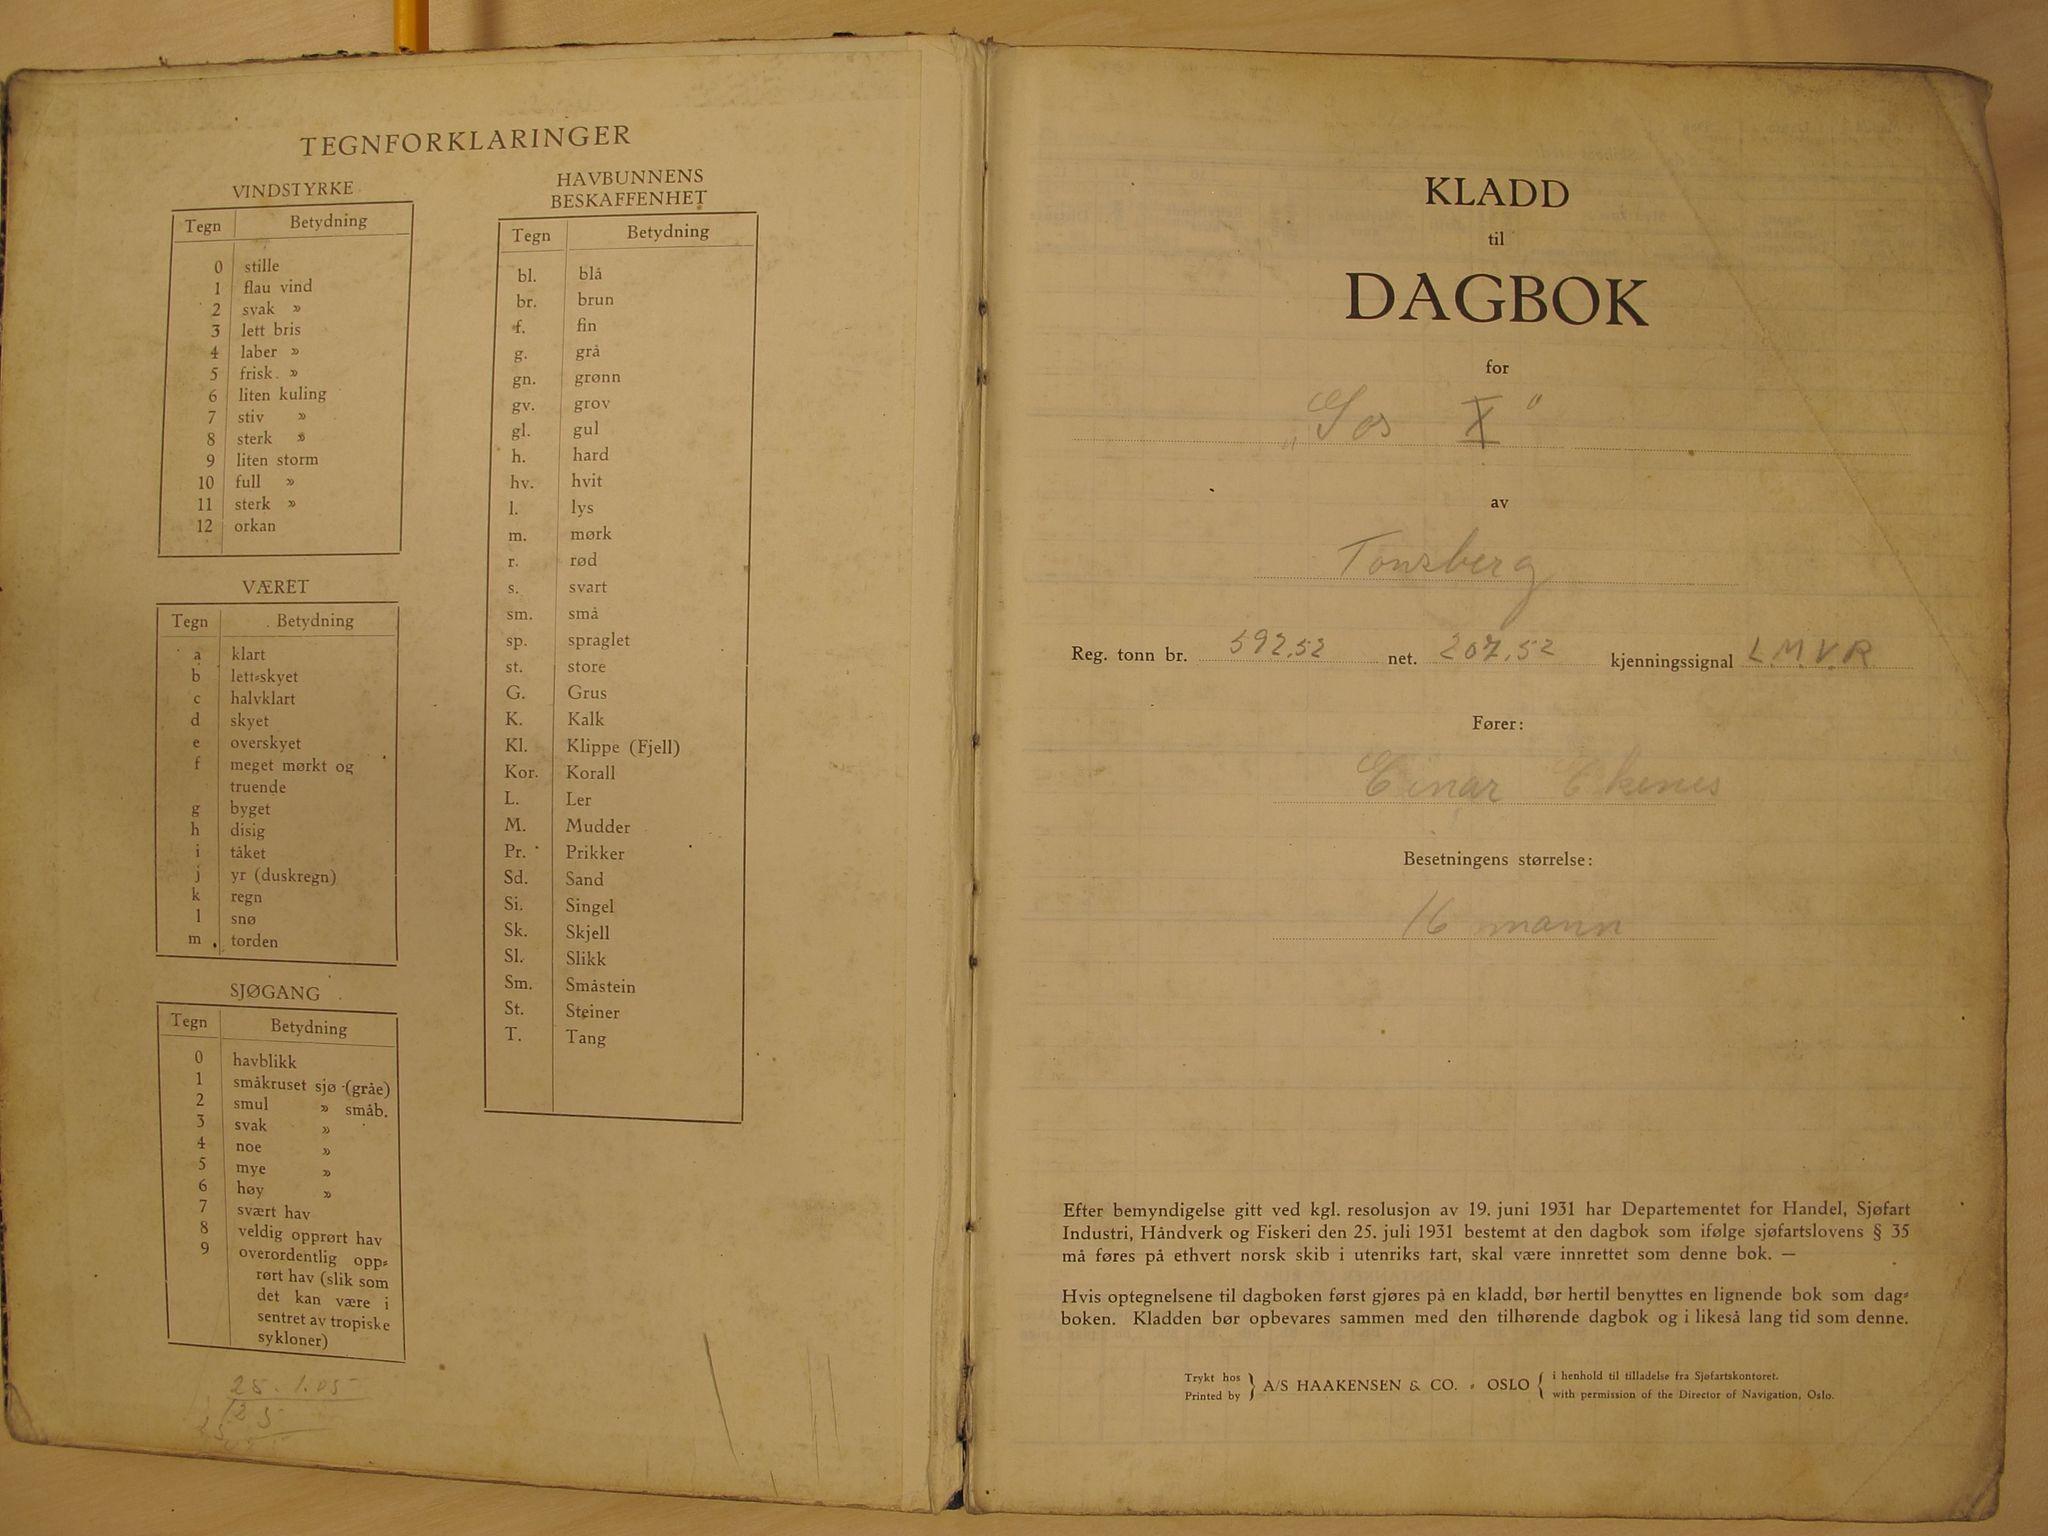 TEGNFORKLARINGER
VINDSTYRKE
Tegn Betydning
0 stille
1 flau vind
2 svak »
3 lett bris
4 laber »
5 frisk. »
6 liten kuling
7 stiv »
8 sterk »
9 liten storm
10 full »
11 sterk »
12 orkan
VÆRET
Tegn Betydning
a klart
b lett-skyet
c halvklart
d skyet
e overskyet
f meget mørkt og
truende
g byget
h disig
i tåket
j yr (duskregn)
k regn
l snø
m torden
SJØGANG
Tegn Betydning
0 havblikk
1 småkruset sjø (gråe)
2 smul » småb.
3 svak »
4 noe »
5 mye »
6 høy »
7 svært hav
8 veldig opprørt hav
9 overordentlig opp-
rørt hav (slik som
det kan være i
sentret av tropiske
sykloner)
25.1.05
HAVBUNNENS
BESKAFFENHET
Tegn Betydning
bl. blå
br. brun
f. fin
g. grå
gn. grønn
gv. grov
gl. gul
h. hard
hv. hvit
l. lys
m. mørk
r. rød
s. svart
sm. små
sp. spraglet
st. store
G. Grus
K. Kalk
Kl. Klippe (Fjell)
Kor. Korall
L. Ler
M. Mudder
Pr. Prikker
Sd. Sand
Si. Singel
Sk. Skjell
Sl. Slikk
Sm. Småstein
St. Steiner
T. Tang
KLADD
til
DAGBOK
for
„Sos X"
av
Tønsberg
Reg. tonn br. 592,52 net. 207,52 kjenningssignal L.M.V.R
Fører:
Einar Ekenes
Besetningens størrelse:
16 mann
Efter bemyndigelse gitt ved kgl. resolusjon av 19. juni 1931 har Departementet for Handel, Sjøfart
Industri, Håndverk og Fiskeri den 25. juli 1931 bestemt at den dagbok som ifølge sjøfartslovens § 35
må føres på ethvert norsk skib i utenriks tart, skal være innrettet som denne bok. —
Hvis optegnelsene til dagboken først gjøres på en kladd, bør hertil benyttes en lignende bok som dag-
boken. Kladden bør opbevares sammen med den tilhørende dagbok og i likeså lang tid som denne.
Trykt hos
Printed by } A/S HAAKENSEN & CO. - OSLO { i henhold til tilladelse fra Sjøfartskontoret.
with permission of the Director of Navigation, Oslo.